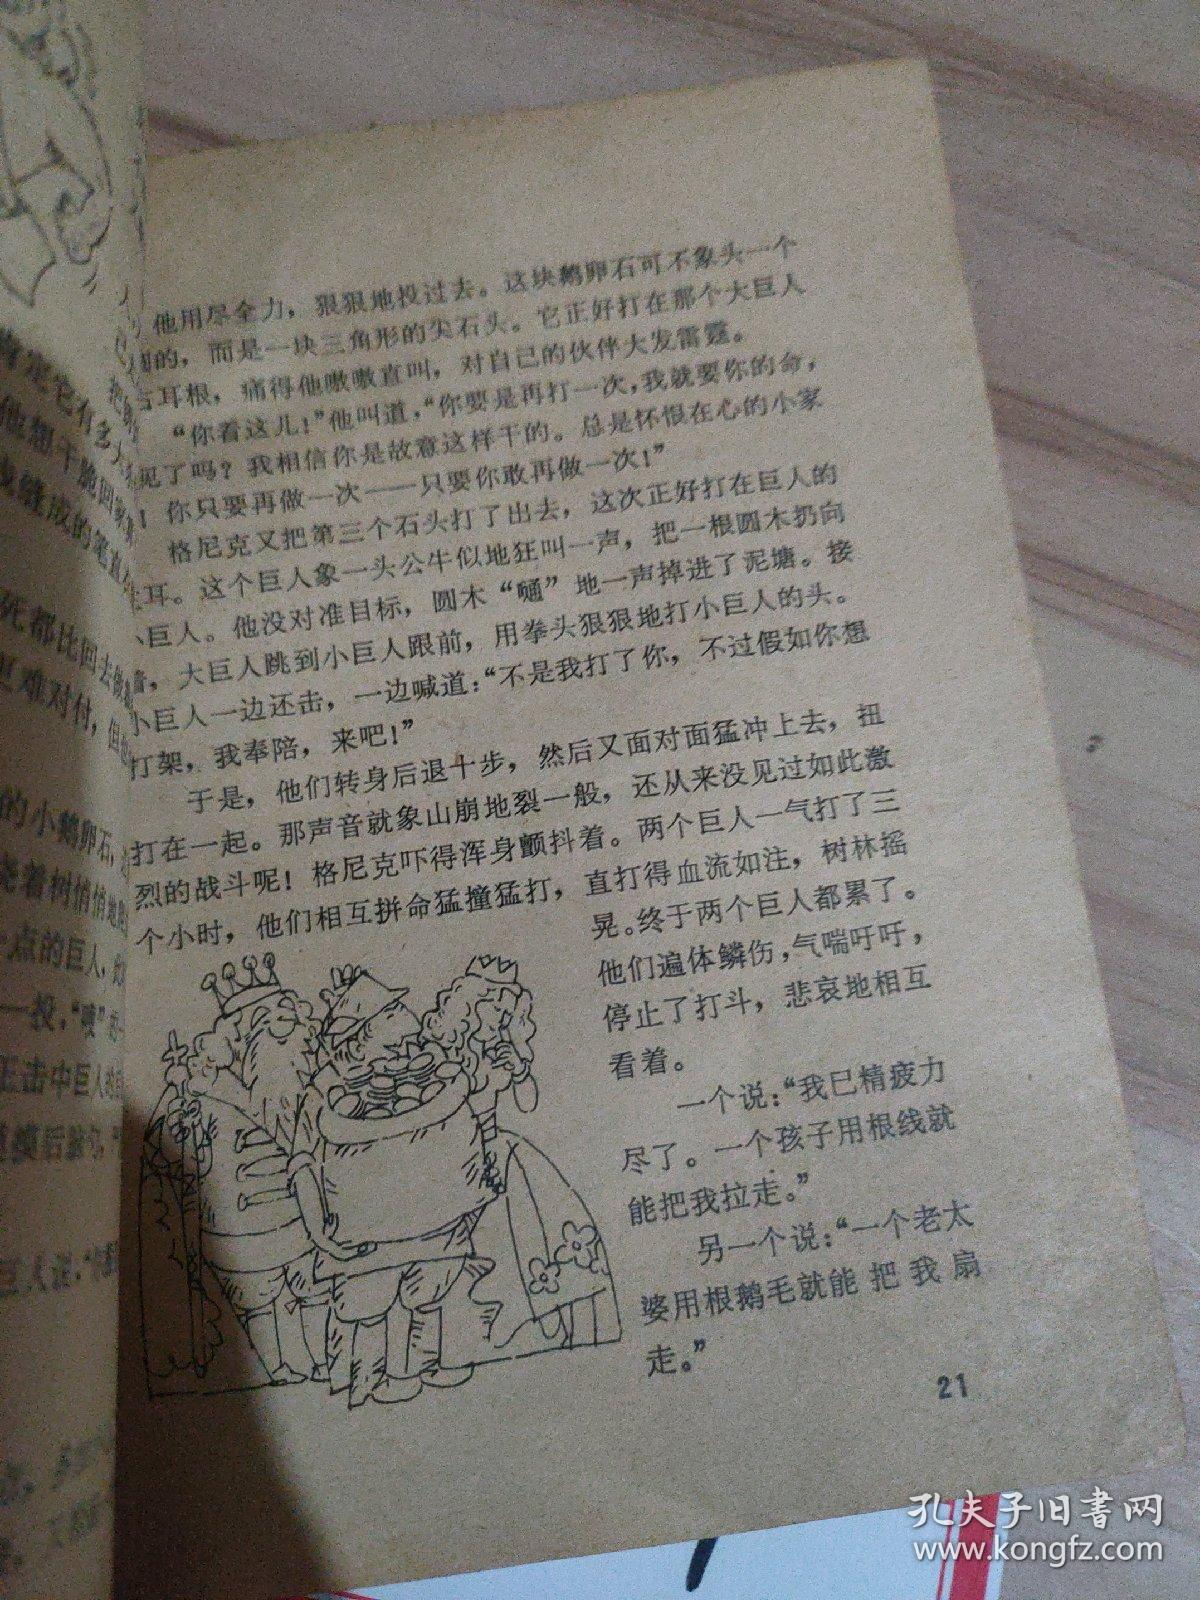 他用尽全力，狠狠地投过去。这块鹅卵石可不象头一个
的，而是一块三角形的尖石头。它正好打在那个大巨人
耳根，痛得他嗷嗷直叫，对自己的伙伴大发雷霆。
“你看这儿！”他叫道，“你要是再打一次，我就要你的命，
见了吗？我相信你是故意这样干的。总是怀恨在心的小家
！你只要再做一次——只要你敢再做一次！”
格尼克又把第三个石头打了出去，这次正好打在巨人的
耳。这个巨人象一头公牛似地狂叫一声，把一根圆木扔向
小巨人。他没对准目标，圆木“嗵”地一声掉进了泥塘。接
着，大巨人跳到小巨人跟前，用拳头狠狠地打小巨人的头。
小巨人一边还击，一边喊道：“不是我打了你，不过假如你想
打架，我奉陪，来吧！”
于是，他们转身后退十步，然后又面对面猛冲上去，扭
打在一起。那声音就象山崩地裂一般，还从来没见过如此激
烈的战斗呢！格尼克吓得浑身颤抖着。两个巨人一气打了三
个小时，他们相互拼命猛撞猛打，直打得血流如注，树林摇
晃。终于两个巨人都累了。
他们遍体鳞伤，气喘吁吁，
停止了打斗，悲哀地相互
看着。
一个说：“我已精疲力
尽了。一个孩子用根线就
能把我拉走。”
另一个说：“一个老太
婆用根鹅毛就能把我扇
走。”
21
死都比回去做
更难对付，但
的小鹅卵石，
绕着树悄悄地
一点的巨人，
正击中巨人的
孔夫子旧书网
www.kongfz.com